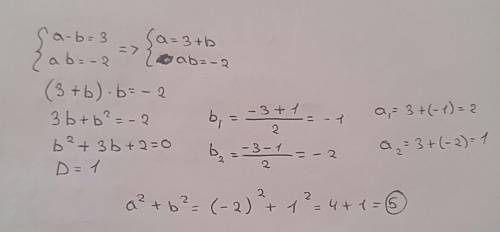 { a-b=3 => { a=3+b
{ ab=-2 { ab=-2
(3+b)·b=-2
3b+b²=-2
b²+3b+2=0
D=1
b₁=(-3+1)/2=-1
b₂=(-3-1)/2=-2
a₁=3+(-1)=2
a₂=3+(-2)=1
a²+b²=(-2)²+1²=4+1=5